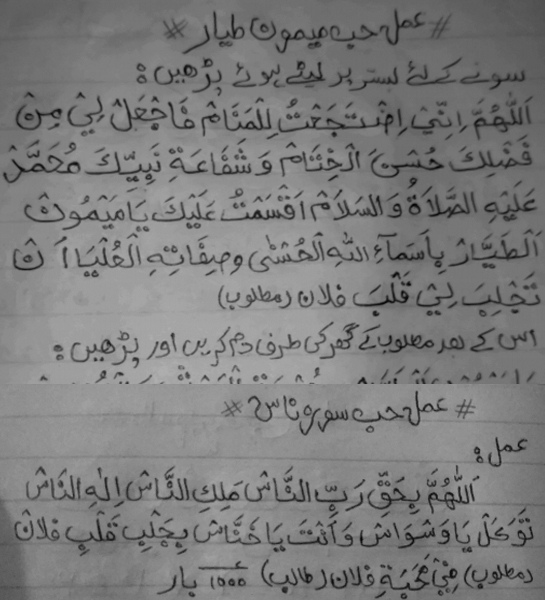 # عمل حب میمون طیار #
سونے کے لئے بستر پر لیٹے ہوئے پڑھیں:
اَللّٰهُمَّ اِنِّيْ اِضْتَجَعْتُ لِلْمَنَامْ فَاجْعَلْ لِيْ مِنْ
فَضْلِكَ حُسْنَ الْخِتَامْ وَ شَفَاعَةِ نَبِيِّكَ مُحَمَّدْ
عَلَيْهِ الصَّلَاةُ وَ السَلَامْ اَقْسَمْتُ عَلَيْكَ يَا مَيْمُونْ
اَلطَيَّارْ بِاَسمآءِ اللهِ الْحُسْنٰى وصِفَاتِهِ الْعُلْيَا اَنْ
تَجْلِبَ لِيْ قَلْبَ فلان (مطلوب)
اس کے بعد مطلوب کے گھر کی طرف دم کریں اور پڑھیں:
# عمل حب سورہ ناس #
عمل:
اَللّٰهُمَّ بِحَقِّ رَبِّ النَّاسْ مَلِكِ النَّاسْ اِلٰهِ النَاسْ
تَوَكَّلْ يَا وَسْوَاسْ وَ اَنْتَ يَا خَنَّاسْ بِجَلْبِ قَلْبِ فلان
(مطلوب) فِيْ مَحَبَّةِ فلان (طالب) ۱۰۰۰ بار